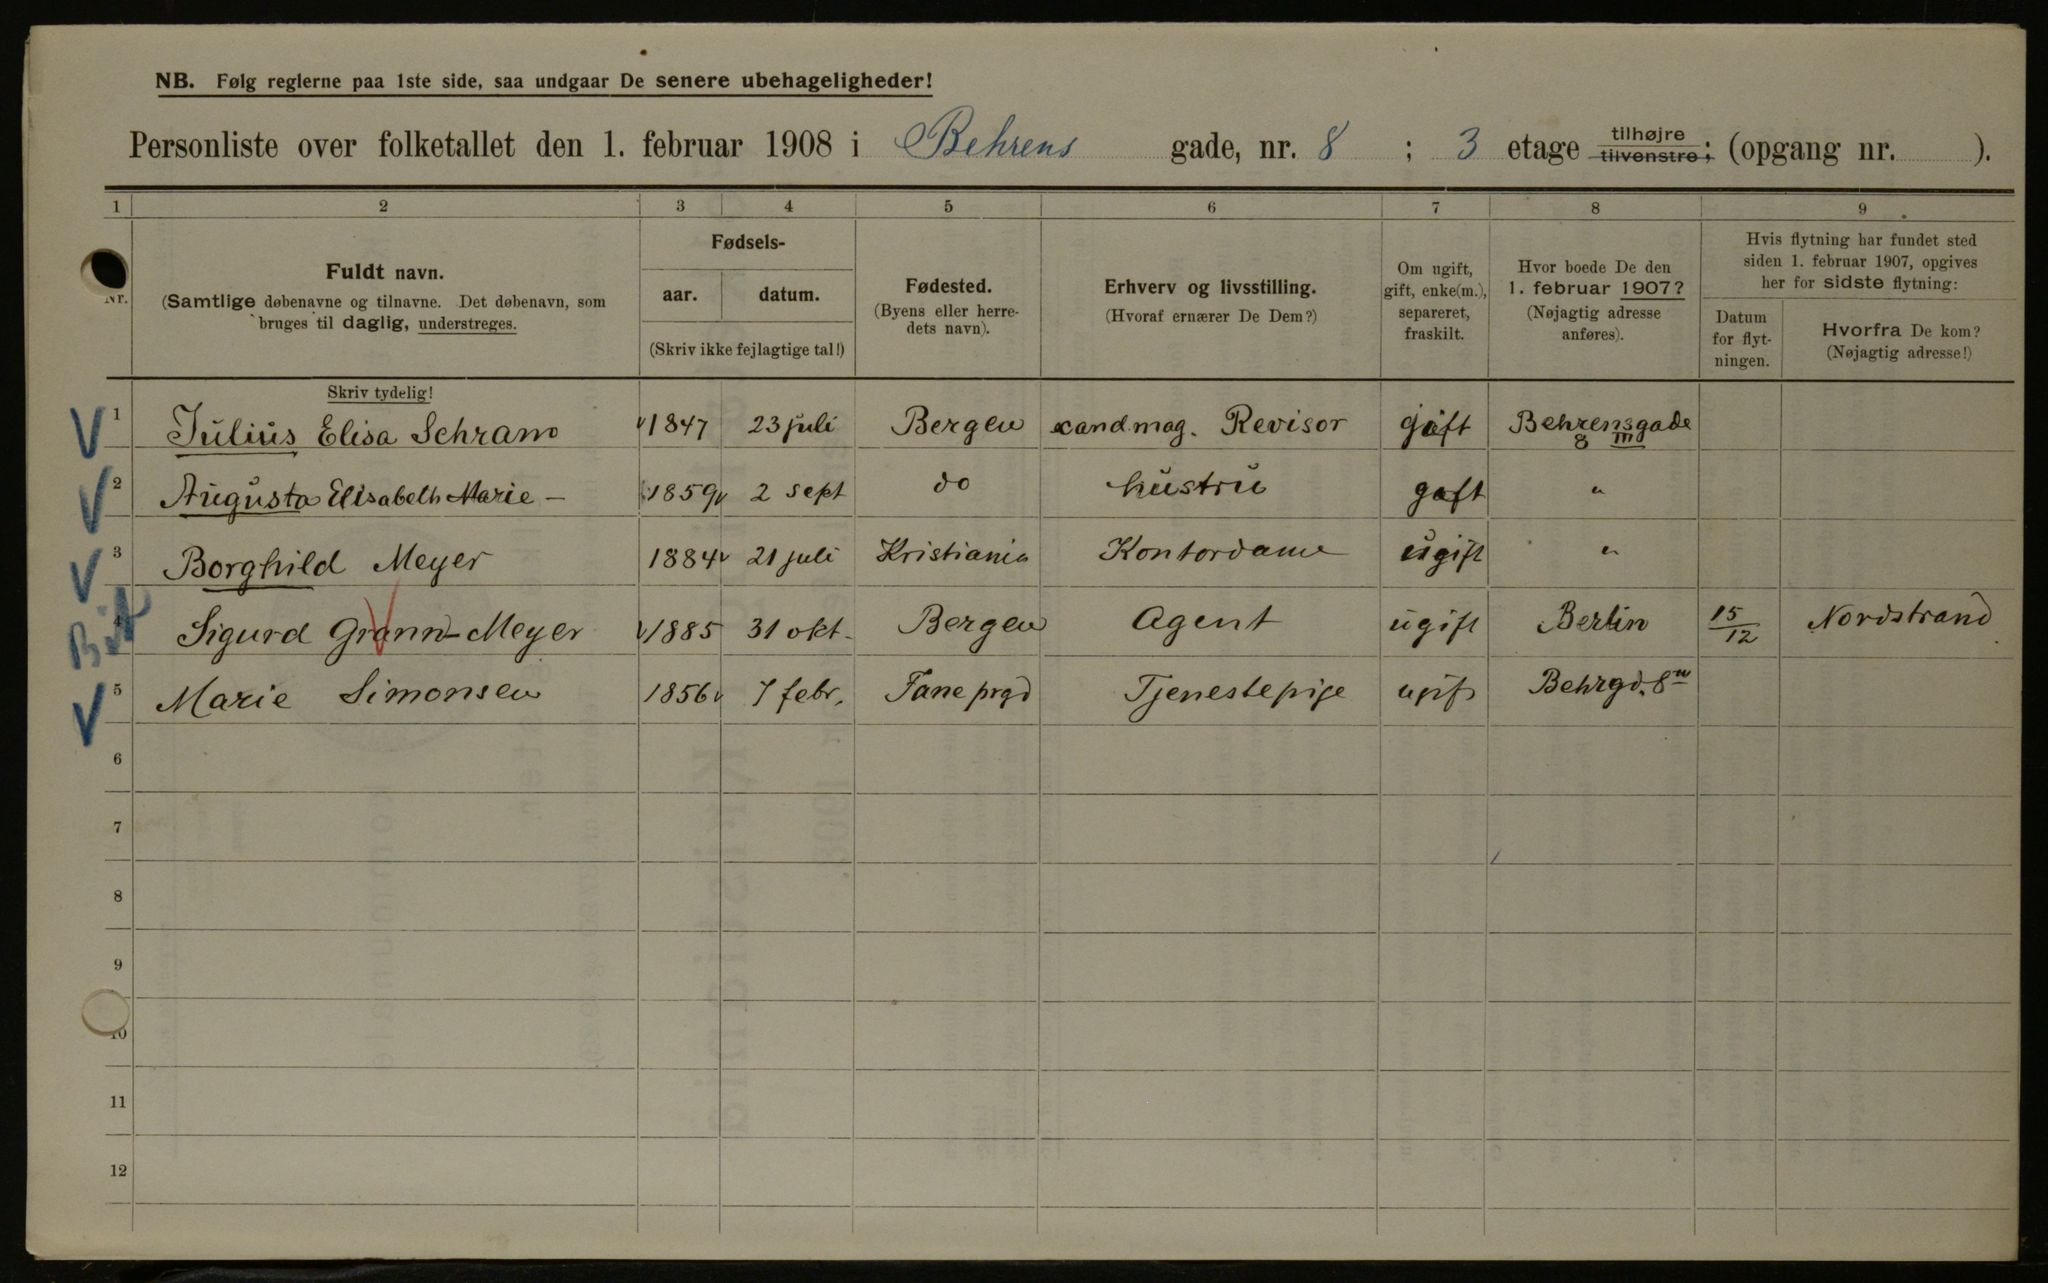 NB. Følg reglerne paa 1ste side, saa undgaar De senere ubehageligheder!
Personliste over folketallet den 1. februar 1908 i Behrens gade, nr. 8 ; 3 etage tilhøjre tilvenstre; (opgang nr. ).
1 2 3 4 5 6 7 8 9
Nr.
Fuldt navn.
(Samtlige døbenavne og tilnavne. Det døbenavn, som
bruges til daglig, understreges.
Skriv tydelig!
Fødsels-
aar. datum.
(Skriv ikke fejlagtige tal!)
Fødested.
(Byens eller herre-
dets navn).
Erhverv og livsstilling.
(Hvoraf ernærer De Dem?)
Om ugift,
gift, enke(m.),
separeret,
fraskilt.
Hvor boede De den
1. februar 1907?
(Nøjagtig adresse
anføres).
Hvis flytning har fundet sted
siden 1. februar 1907, opgives
her for sidste flytning:
Datum
for flyt-
ningen.
Hvorfra De kom?
(Nøjagtig adresse!)
1 Julius Elisa Schram 1847 23 juli Bergen cand mag. Revisor gift Behrensgade 8 III
2 Augusta Elisabeth Marie — 1859 2 sept do hustru gift "
3 Borghild Meyer 1884 21 juli Kristiania Kontordame ugift "
4 Sigurd Grann-Meyer 1885 31 okt. Bergen Agent ugift Berlin 15/12 Nordstrand
5 Marie Simonsen 1856 7 febr. Fane prgd Tjenestepige ugift Behrgd. 8
6
7
8
9
10
11
12